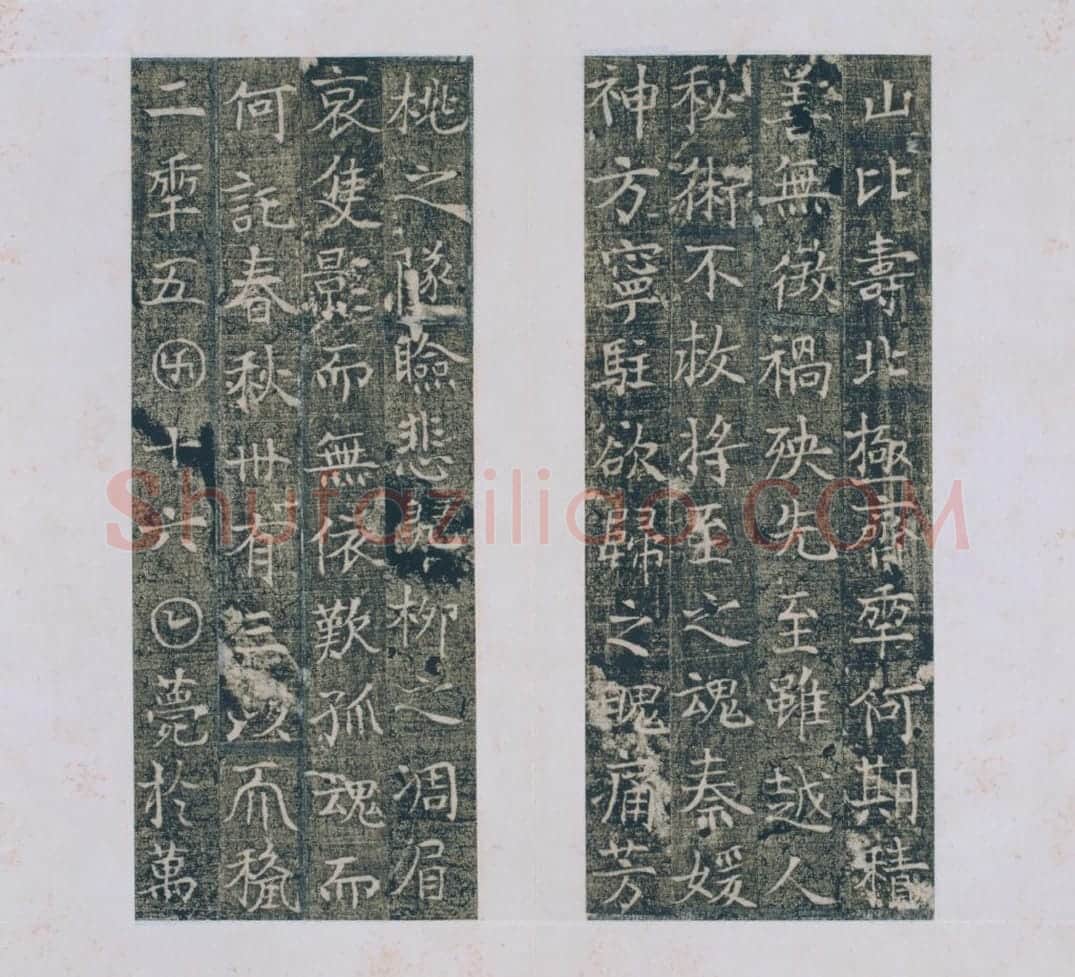 山比壽北極齊𠡦何期積
善無徵禍殃先至雖越人
秘術不救將至之魂秦媛
神方寧駐欲歸之魄痛芳
桃之隊臉悲翠柳之凋眉
哀隻影而無依歎孤魂而
何託春秋卌有三以𠀑𥠢
二𠡦五𠥱十八𡆠薨於萬
Shufaziliao.com